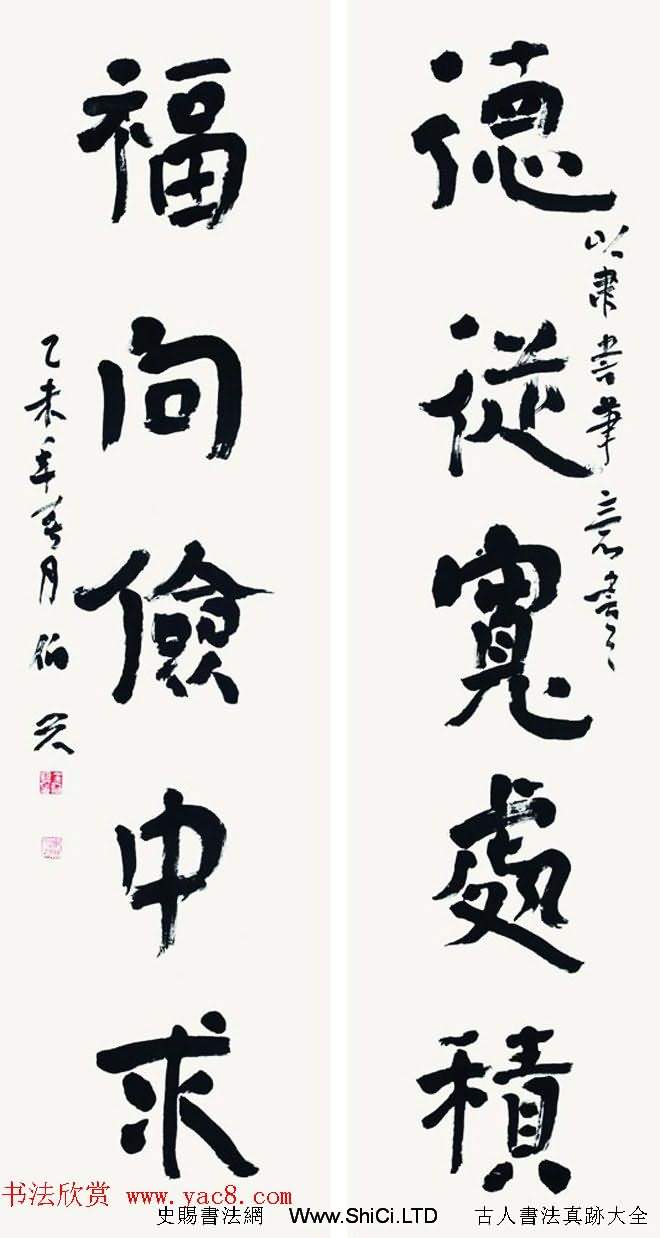 德從寬處積
以隶書筆意書之
福向儉中求
乙未年春月伯
书法欣赏 www.yac8.com
史賜書法網 Www.ShiCi.LTD 古人書法真跡大全